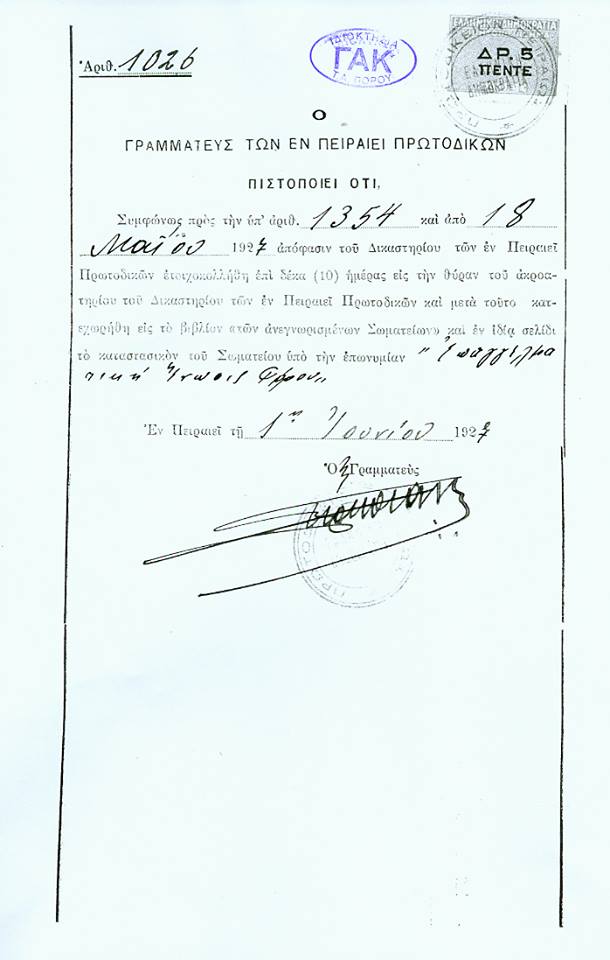 Ἀριθ. 1026
ΙΔΙΟΚΤΗΣΙΑ
ΓΑΚ
Τ.Α. ΠΟΡΟΥ
ΕΛΛΗΝΙΚΗ ΔΗΜΟΚΡΑΤΙΑ
ΔΡ. 5
ΠΕΝΤΕ
Ο
ΓΡΑΜΜΑΤΕΥΣ ΤΩΝ ΕΝ ΠΕΙΡΑΙΕΙ ΠΡΩΤΟΔΙΚΩΝ
ΠΙΣΤΟΠΟΙΕΙ ΟΤΙ,
Συμφώνως πρὸς τὴν ὑπ' ἀριθ. 1354 καὶ ἀπὸ 18
Μαΐου 1927 ἀπόφασιν τοῦ Δικαστηρίου τῶν ἐν Πειραιεῖ
Πρωτοδικῶν ἐτοιχοκολλήθη ἐπὶ δέκα (10) ἡμέρας εἰς τὴν θύραν τοῦ ἀκροα-
τηρίου τοῦ Δικαστηρίου τῶν ἐν Πειραιεῖ Πρωτοδικῶν καὶ μετὰ τοῦτο κατ-
εχωρήθη εἰς τὸ βιβλίον «τῶν ἀνεγνωρισμένων Σωματείων» καὶ ἐν ἰδίᾳ σελίδι
τὸ καταστασικὸν τοῦ Σωματείου ὑπὸ τὴν ἐπωνυμίαν " Ἐπαγγελμα
τικὴ Ἕνωσις Πόρου"
Ἐν Πειραιεῖ τῇ 1ῃ Ἰουνίου 1927
Ὁ Γραμματεὺς